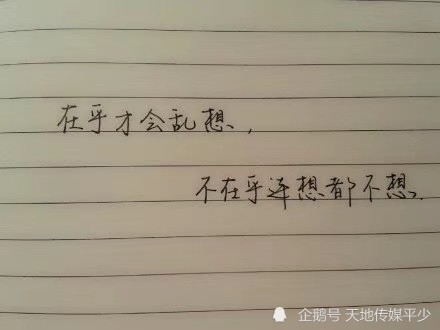 在乎才会乱想，
不在乎连想都不想。
企鹅号 天地传媒平少